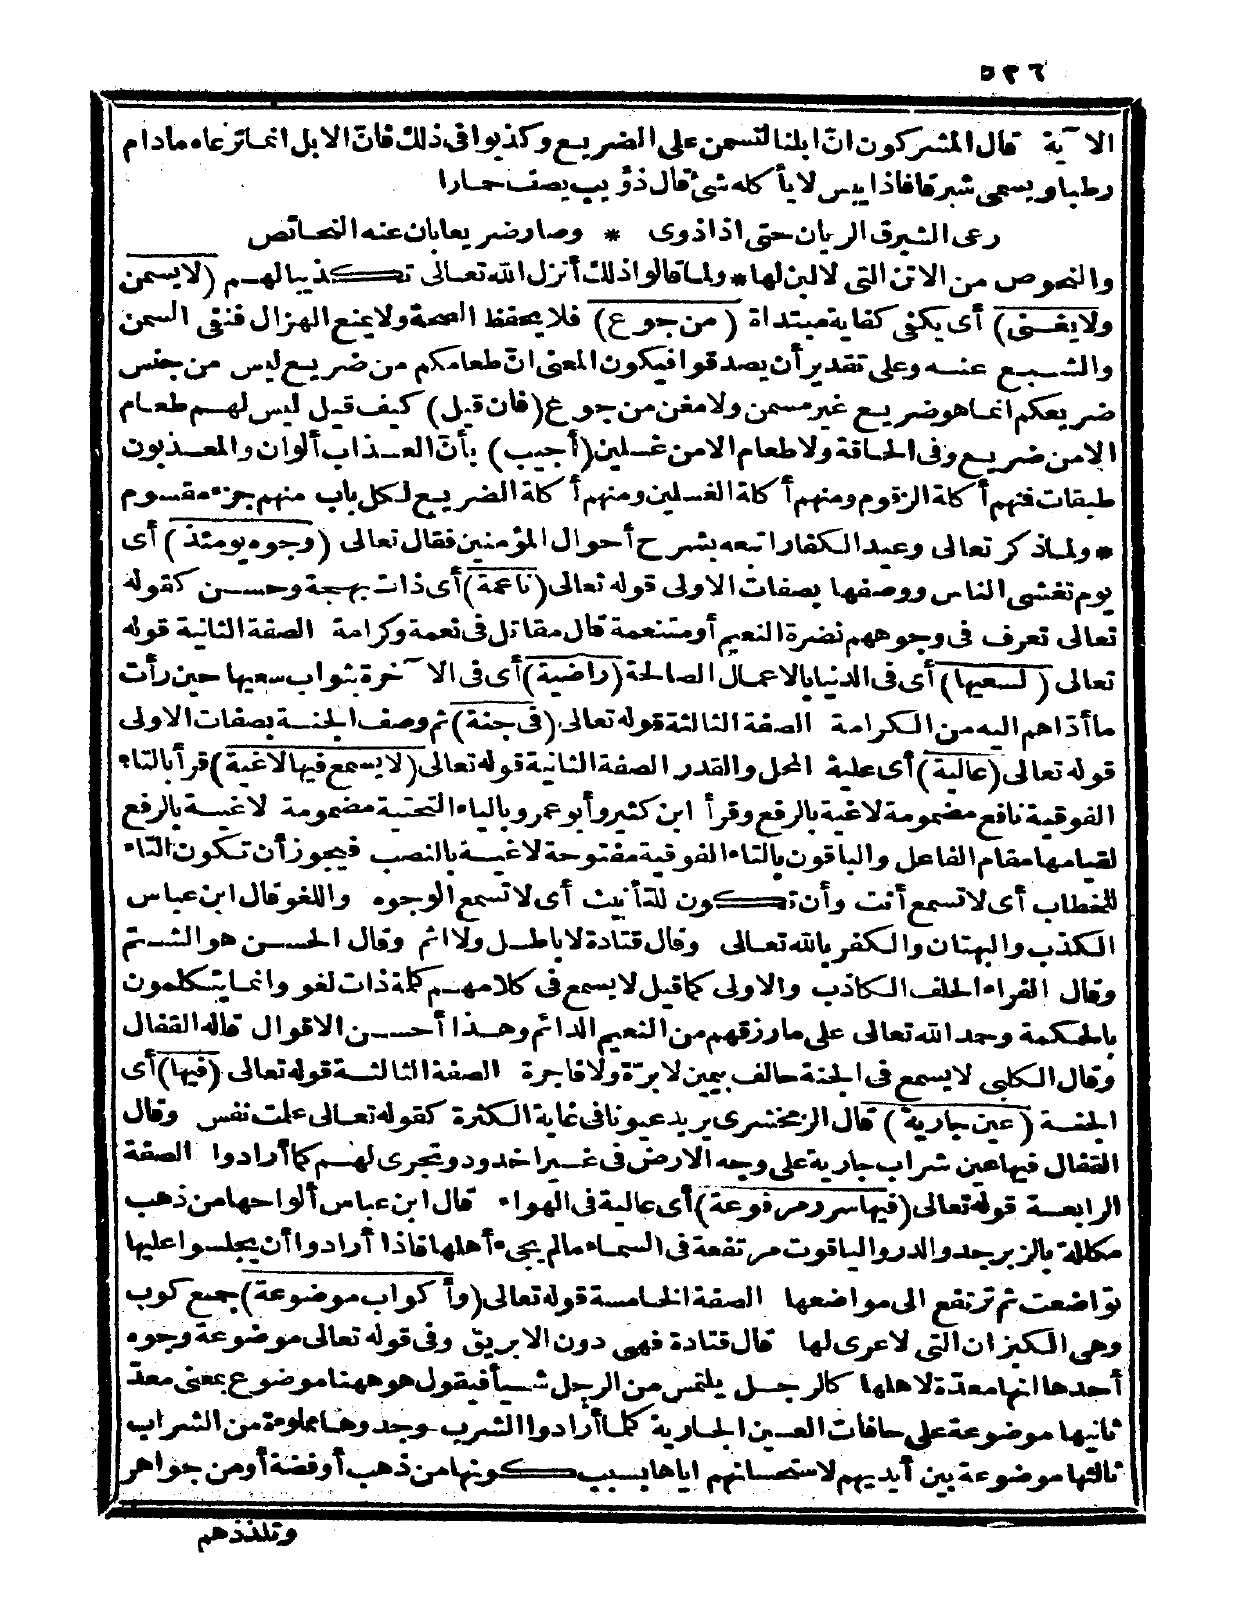 ٥٢٦
الآية قال المشركون انّ ابلنا لتسمن على الضريع وكذبوا فى ذلك فانّ الابل انما ترعاه ما دام
رطبا ويسمى شبرقا فاذا يبس لا يأكله شئ قال ذؤيب يصف حمارا
رعى الشبرق الريان حتى اذا ذوى * وصار ضريعا بان عنه النحائص
والنحوص من الاتن التى لا لبن لها * ولما قالوا ذلك أنزل الله تعالى تكذيبا لهم (لا يسمن
ولا يغنى) أى يكفى كفاية مبتدأة (من جوع) فلا يحفظ الصحة ولا يمنع الهزال فنفى السمن
والشبع عنه وعلى تقدير أن يصدقوا فيكون المعنى انّ طعامكم من ضريع ليس من جنس
ضريعكم انما هو ضريع غير مسمن ولا مغن من جوع (فان قيل) كيف قيل ليس لهم طعام
الا من ضريع وفى الحاقة ولا طعام الا من غسلين (أجيب) بأنّ العذاب ألوان والمعذبون
طبقات فمنهم أكلة الزقوم ومنهم أكلة الغسلين ومنهم أكلة الضريع لكل باب منهم جزء مقسوم
* ولما ذكر تعالى وعيد الكفار اتبعه بشرح أحوال المؤمنين فقال تعالى (وجوه يومئذ) أى
يوم تغشى الناس ووصفها بصفات الاولى قوله تعالى (ناعمة) أى ذات بهجة وحسن كقوله
تعالى تعرف فى وجوههم نضرة النعيم أو متنعمة قال مقاتل فى نعمة وكرامة الصفة الثانية قوله
تعالى (لسعيها) أى فى الدنيا بالاعمال الصالحة (راضية) أى فى الآخرة بثواب سعيها حين رأت
ما أدّاهم اليه من الكرامة الصفة الثالثة قوله تعالى (فى جنة) ثم وصف الجنة بصفات الاولى
قوله تعالى (عالية) أى علية المحل والقدر الصفة الثانية قوله تعالى (لا يسمع فيها لاغية) قرأ بالتاء
الفوقية نافع مضمومة لاغية بالرفع وقرأ ابن كثير وأبو عمرو بالياء التحتية مضمومة لاغية بالرفع
لقيامها مقام الفاعل والباقون بالتاء الفوقية مفتوحة لاغية بالنصب فيجوز أن تكون التاء
للخطاب أى لا تسمع أنت وأن تكون للتأنيث أى لا تسمع الوجوه واللغو قال ابن عباس
الكذب والبهتان والكفر بالله تعالى وقال قتادة لا باطل ولا اثم وقال الحسن هو الشتم
وقال الفراء الحلف الكاذب والاولى كما قيل لا يسمع فى كلامهم كلمة ذات لغو وانما يتكلمون
بالحكمة وحمد الله تعالى على ما رزقهم من النعيم الدائم وهذا أحسن الاقوال قاله القفال
وقال الكلبى لا يسمع فى الجنة حالف بيمين لا برّة ولا فاجرة الصفة الثالثة قوله تعالى (فيها) أى
الجنة (عين جارية) قال الزمخشرى يريد عيونا فى غاية الكثرة كقوله تعالى علمت نفس وقال
القفال فيها عين شراب جارية على وجه الارض فى غير اخدود وتجرى لهم كما أرادوا الصفة
الرابعة قوله تعالى (فيها سرر مرفوعة) أى عالية فى الهواء قال ابن عباس ألواحها من ذهب
مكللة بالزبرجد والدر والياقوت مرتفعة فى السماء مالم يجىء أهلها فاذا أرادوا أن يجلسوا عليها
تواضعت ثم ترتفع الى مواضعها الصفة الخامسة قوله تعالى (وأكواب موضوعة) جمع كوب
وهى الكيزان التى لا عرى لها قال قتادة فهى دون الابريق وفى قوله تعالى موضوعة وجوه
أحدها انها معدّة لاهلها كالرجل يلتمس من الرجل شيأ فيقول هو ههنا موضوع بمعنى معدّ
ثانيها موضوعة على حافات العين الجارية كلما أرادوا الشرب وجدوها مملوءة من الشراب
ثالثها موضوعة بين أيديهم لاستحسانهم اياها بسبب كونها من ذهب أو فضة أو من جواهر
وتلذذهم